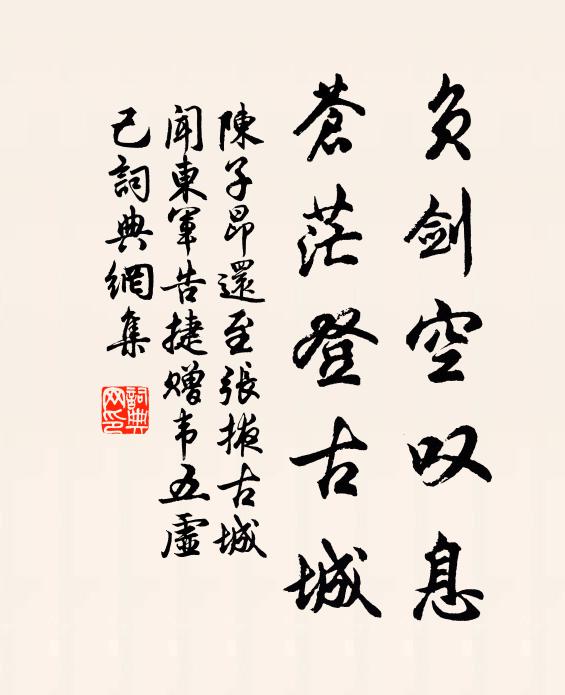 负剑空叹息
蒼茫登古城
陳子昂還至張掖古城
闻東軍告捷赠韦五虚
己詞典網集
詞典
网印